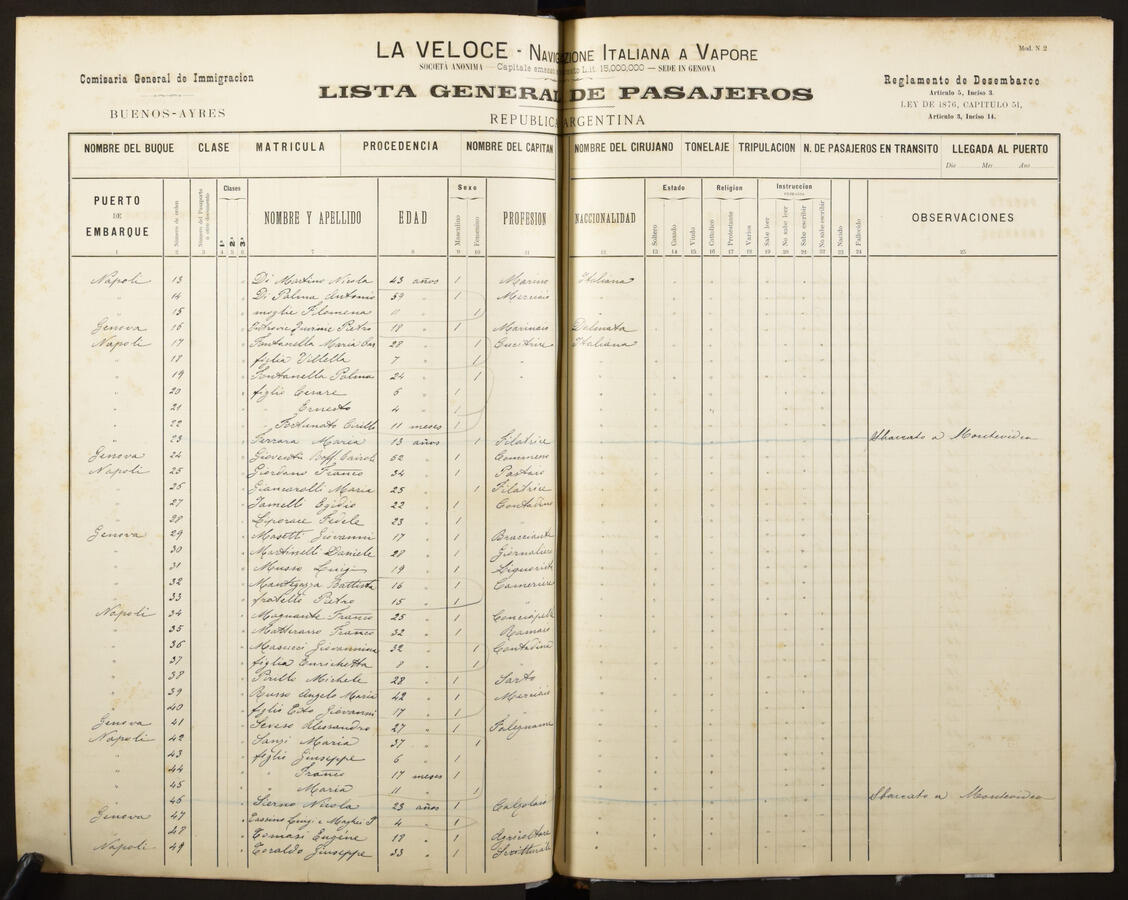 LA VELOCE - NAVIGAZIONE ITALIANA A VAPORE
SOCIETÀ ANONIMA — Capitale L.it. 15,000,000 — SEDE IN GENOVA
Mod. N. 2
Comisaria General de Immigracion
BUENOS-AYRES
LISTA GENERAL DE PASAJEROS
REPUBLICA ARGENTINA
Reglamento de Desembarco
Articulo 5, Inciso 3.
LEY DE 1876, CAPITULO 51,
Articulo 3, Inciso 14.
NOMBRE DEL BUQUE CLASE MATRICULA PROCEDENCIA NOMBRE DEL CAPITAN NOMBRE DEL CIRUJANO TONELAJE TRIPULACION N. DE PASAJEROS EN TRANSITO LLEGADA AL PUERTO
Dia Mes Ano
PUERTO DE EMBARQUE Número de orden Número del Pasaporte o otro documento Clases 1ª 2ª 3ª NOMBRE Y APELLIDO EDAD Sexo Masculino Femenino PROFESION NACCIONALIDAD Estado Soltero Casado Viudo Religion Catolico Protestante Varios Instruccion Sabe leer No sabe leer Sabe escribir No sabe escribir Nacido Fallecido OBSERVACIONES
Napoli 13 Di Martino Nicola 43 años 1 Marino Italiana
" 14 Di Palma Antonio 59 " 1 Merciaio
" 15 moglie Filomena " 1
Genova 16 Pietro 18 " 1 Marinaio Dalmata
Napoli 17 Fontanella Maria 28 " 1 Cucitrice Italiana
" 18 figlia 7 " 1
" 19 Fontanella Palma 24 " 1 "
" 20 figlio Cesare 6 " 1
" 21 " Ernesto 4 " 1
" 22 " Fortunato Cirillo 11 meses 1
" 23 Ferrara Maria 13 años 1 Filatrice Sbarcato a Montevideo
Genova 24 52 " 1
Napoli 25 Giordano Franco 34 " 1 Pastaio
" 26 Giancarolli Maria 25 " 1 Filatrice
" 27 Egidio 22 " 1 Contadino
" 28 Liporace Fedele 23 " 1 "
Genova 29 Masetti Giovanni 17 " 1 Bracciante
" 30 Martinelli Daniele 28 " 1 Giornaliero
" 31 Musso Luigi 19 " 1 Liquorista
" 32 Mantegazza Battista 16 " 1 Cameriere
" 33 fratello Pietro 15 " 1 "
Napoli 34 Magnante Franco 25 " 1
" 35 Franco 32 " 1 Ramaio
" 36 Masucci Giovannina 32 " 1 Contadina
" 37 figlia Enrichetta 8 " 1
" 38 Pirillo Michele 28 " 1 Sarto
" 39 Russo Angelo Maria 42 " 1 Merciaio
" 40 figlio Giovanni 17 " 1 "
Genova 41 Alessandro 27 " 1 Falegname
Napoli 42 Sanzi Maria 37 " 1
" 43 figlio Giuseppe 6 " 1
" 44 " Franco 17 meses 1
" 45 " Maria 11 " 1
" 46 Sierno Nicola 23 años 1 Calzolaio Sbarcato a Montevideo
Genova 47 4 " 1
" 48 Tomasi Eugène 18 " 1 Agricoltore
Napoli 49 Toraldo Giuseppe 33 " 1